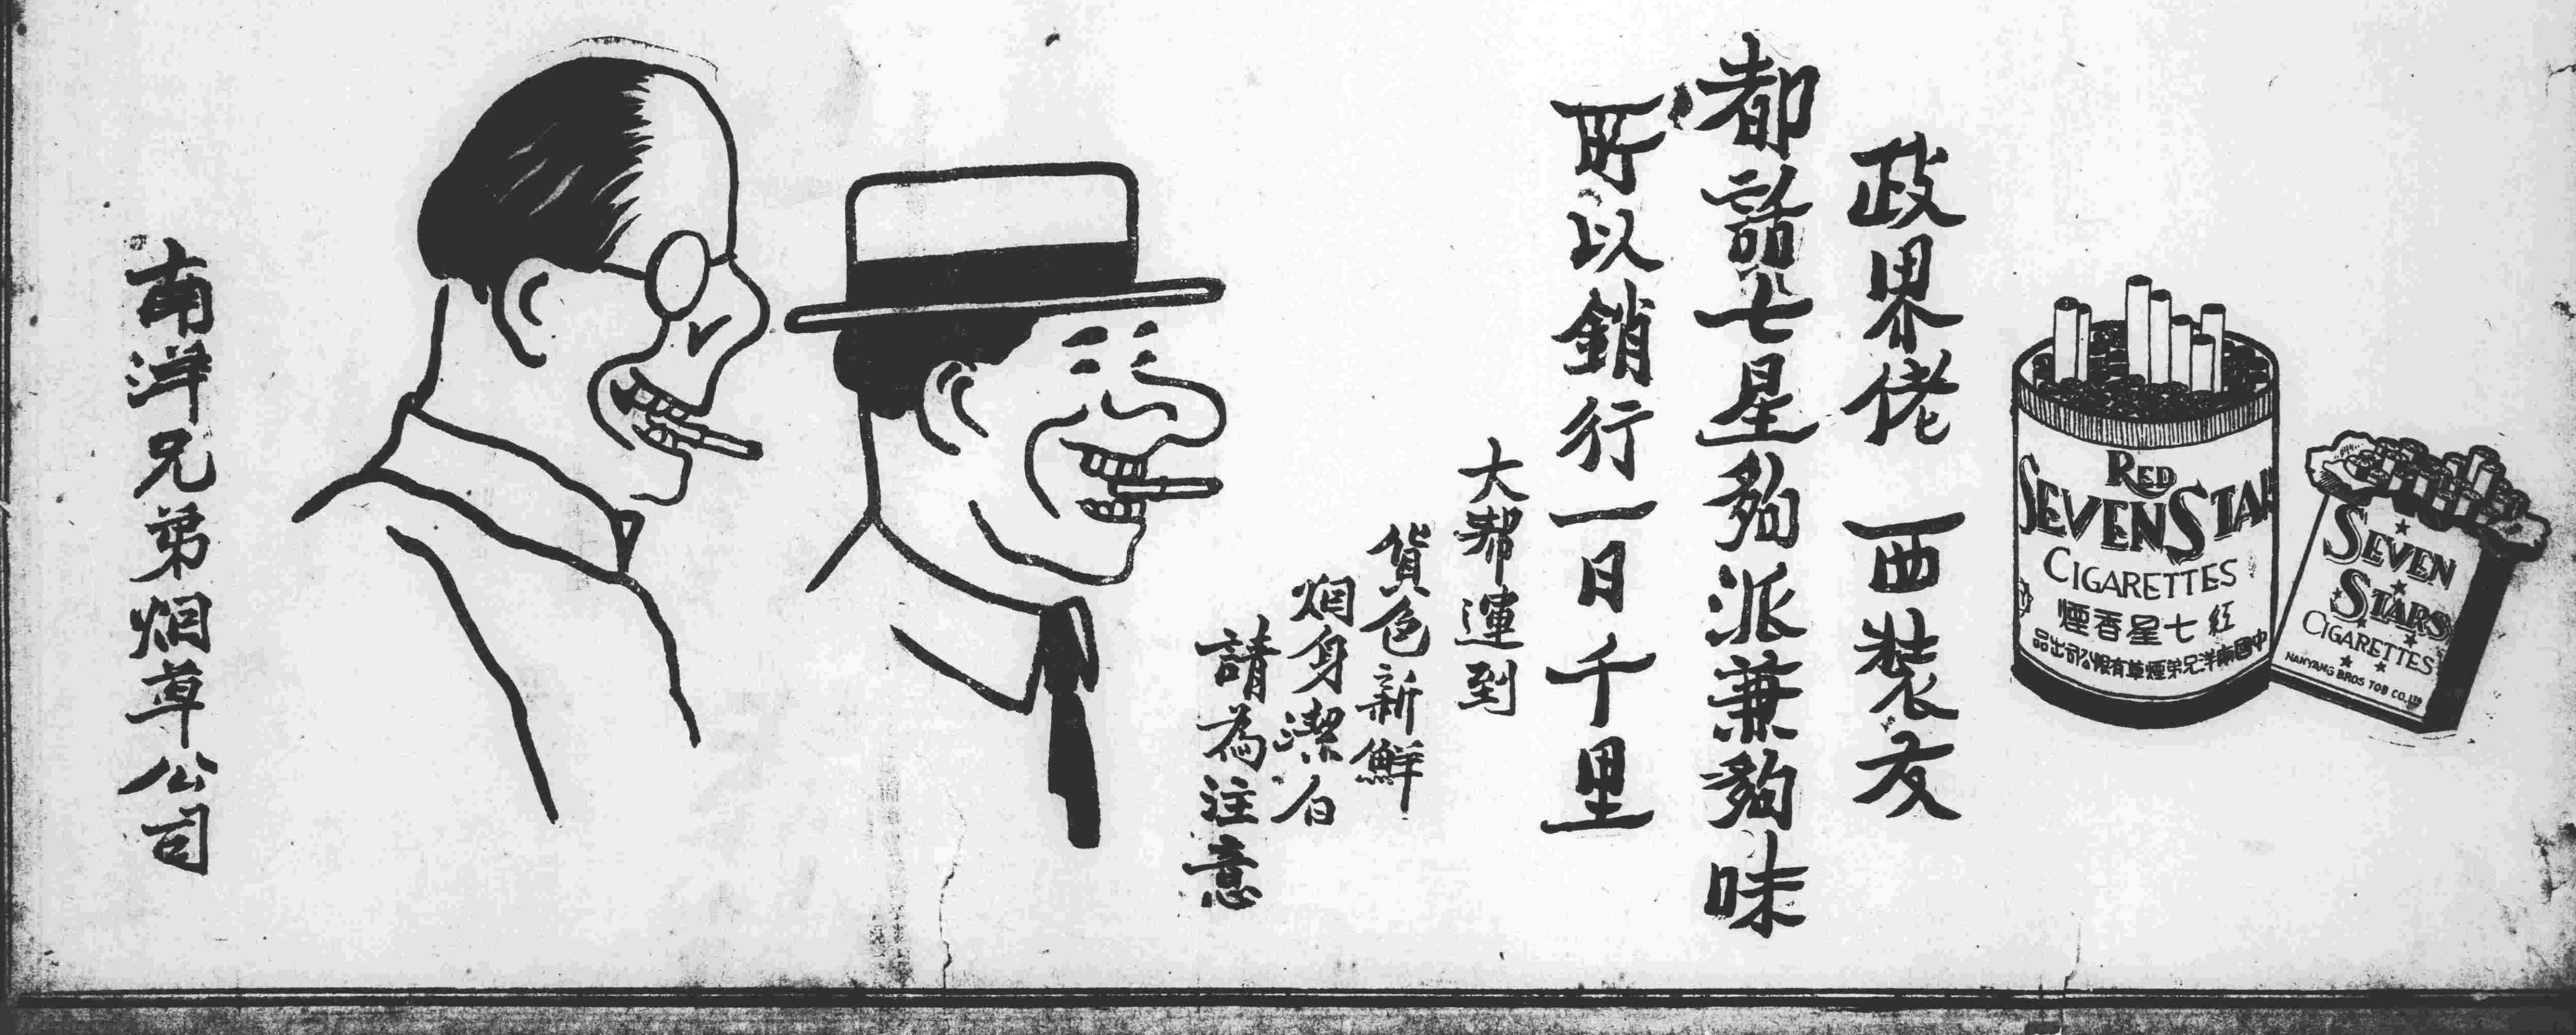 政界佬 西裝友
都話七星夠派兼夠味
所以銷行一日千里
大幫運到
貨色新鮮
烟身潔白
請為注意
南洋兄弟烟草公司
RED
SEVEN STAR
CIGARETTES
紅七星香煙
中國南洋兄弟煙草有限公司出品
SEVEN
STARS
CIGARETTES
NANYANG BROS TOB CO. LTD